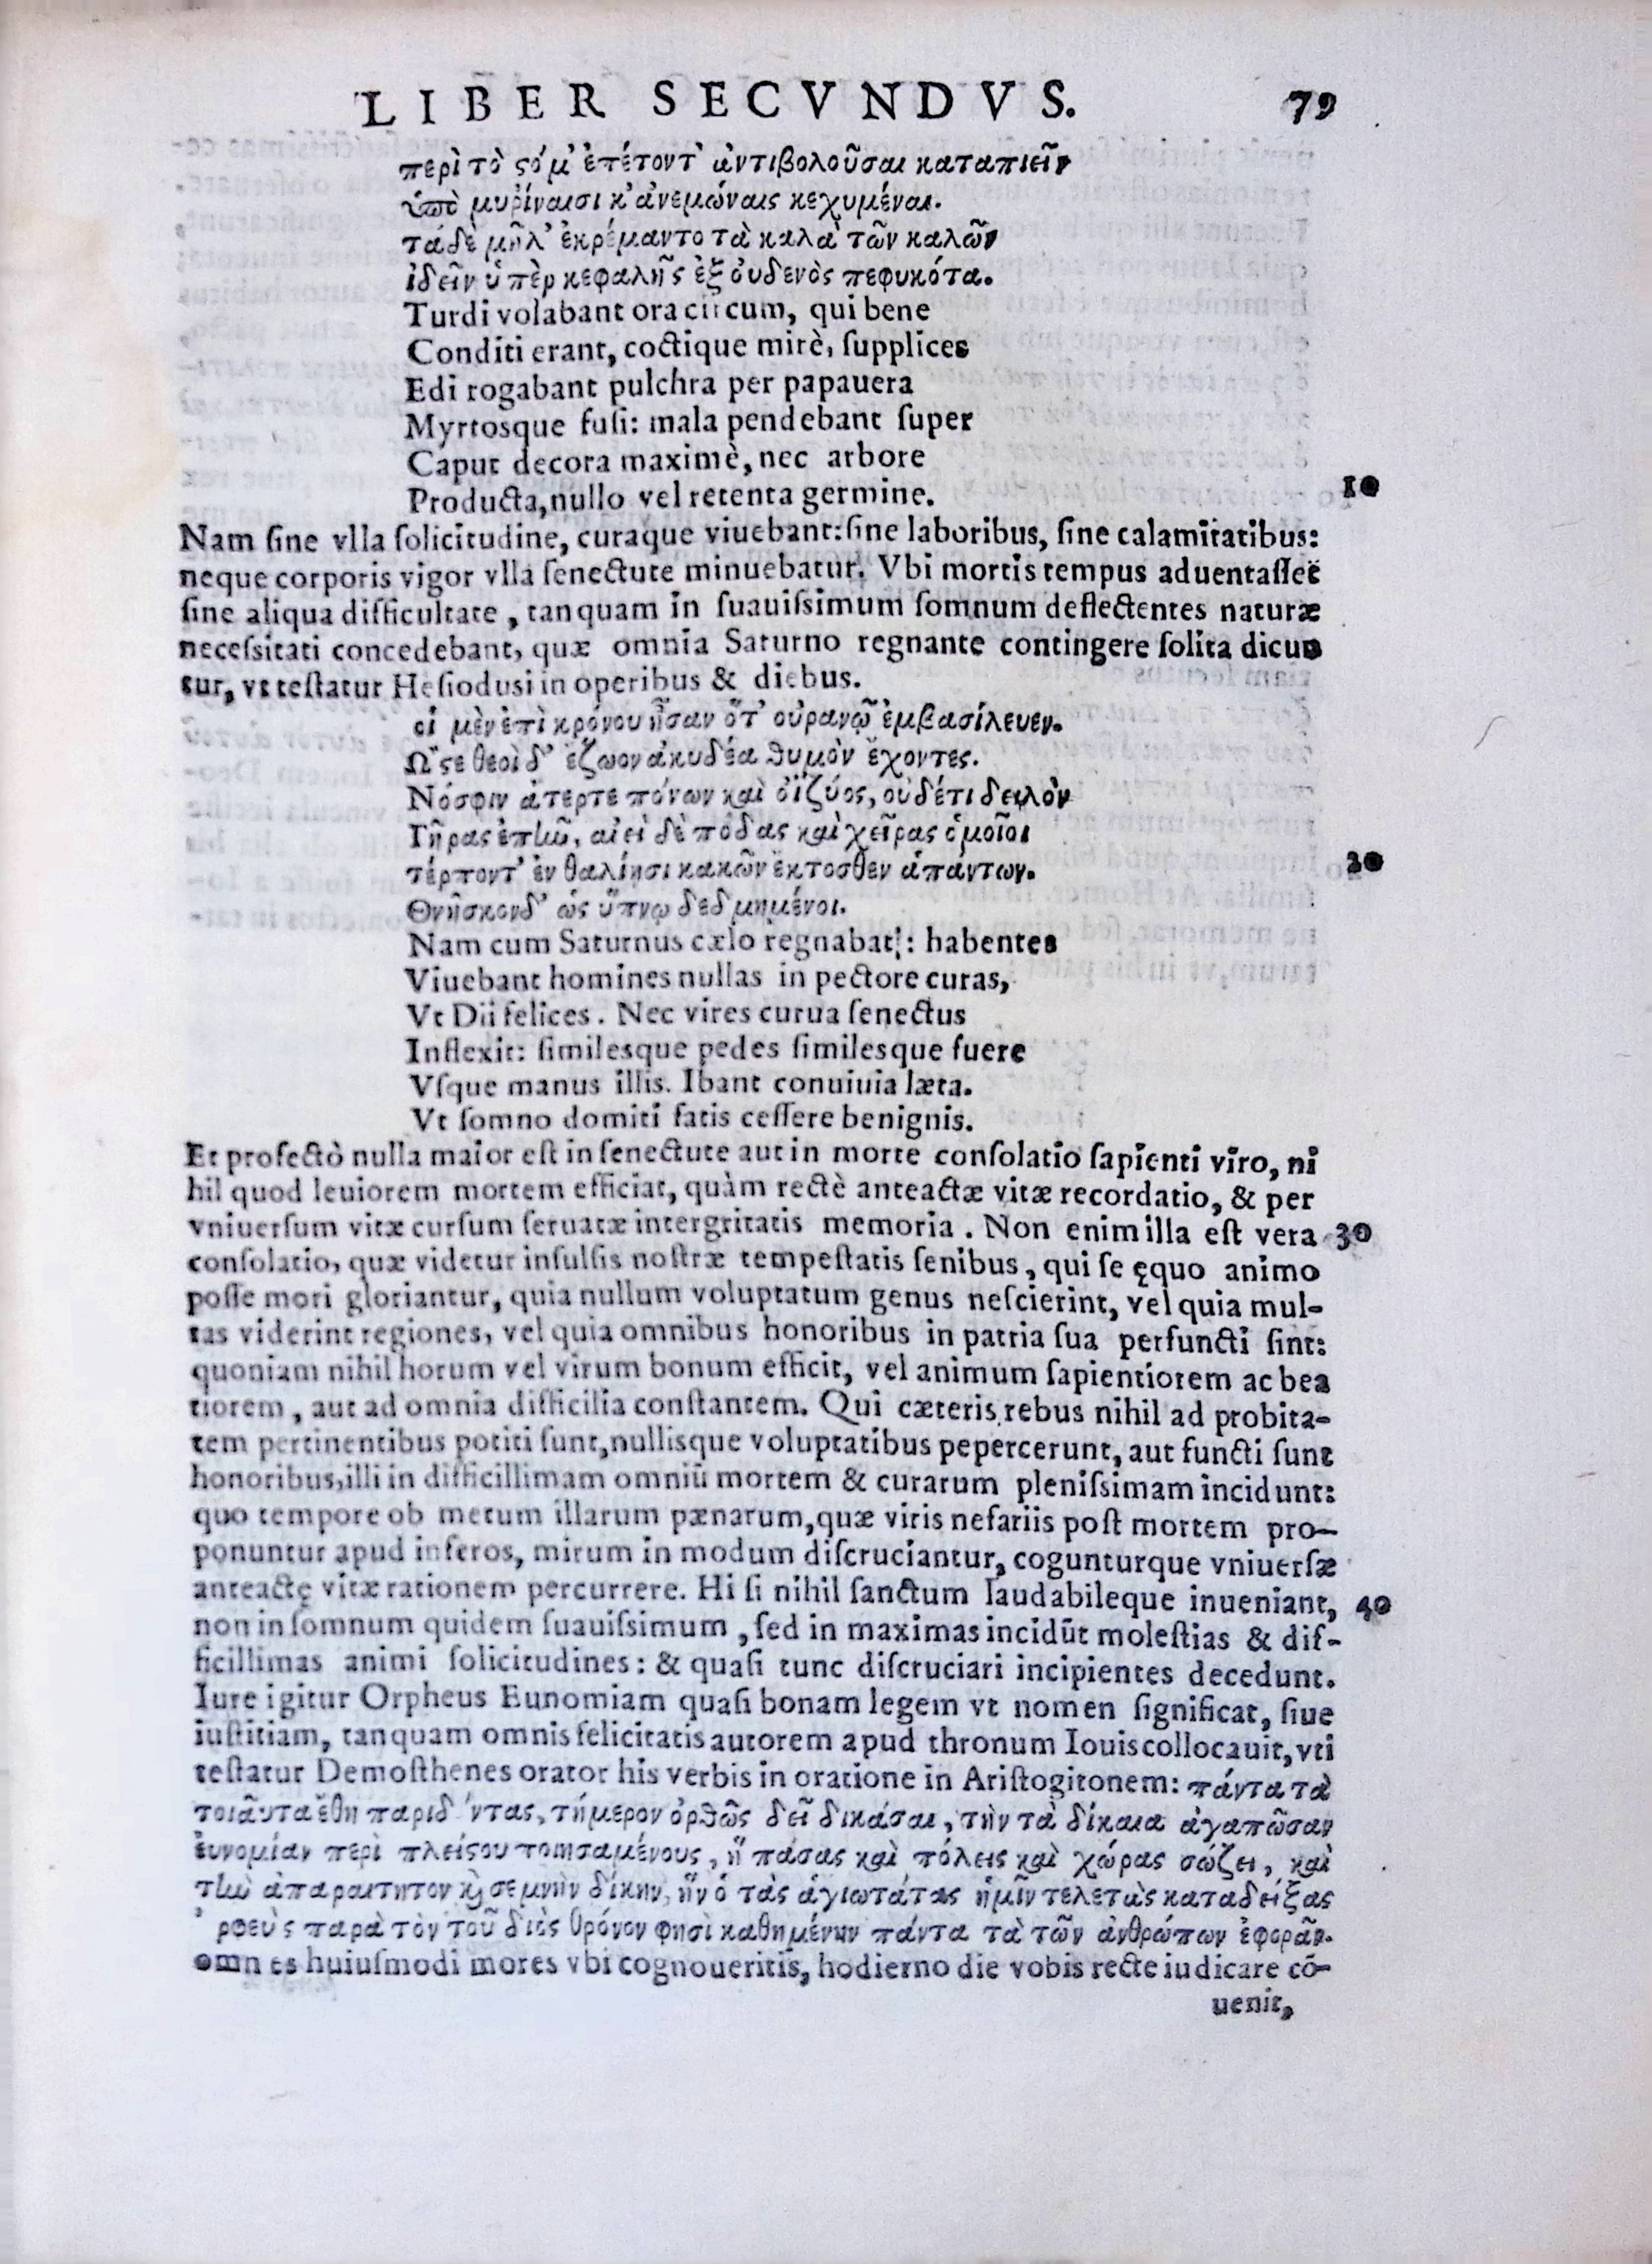 LIBER SECVNDVS. 79
περὶ τὸ ϛόμ' ἐπέτοντ' ἀντιβολοῦσαι καταπιεῖν
ὑπὸ μυρίναισι κ' ἀνεμώναις κεχυμέναι.
τάδὲ μῆλ' ἐκρέμαντο τὰ καλὰ τῶν καλῶν
ἰδεῖν ὑπὲρ κεφαλῆς ἐξ ὀυδενὸς πεφυκότα.
Turdi volabant ora circum, qui bene
Conditi erant, coctique mirè, ſupplices
Edi rogabant pulchra per papauera
Myrtosque fuſi: mala pendebant ſuper
Caput decora maximè, nec arbore
Producta, nullo vel retenta germine. 10
Nam ſine vlla ſolicitudine, curaque viuebant: ſine laboribus, ſine calamitatibus:
neque corporis vigor vlla ſenectute minuebatur. Vbi mortis tempus aduentaſſet
ſine aliqua difficultate, tanquam in ſuauiſsimum ſomnum deflectentes naturæ
neceſsitati concedebant, quæ omnia Saturno regnante contingere ſolita dicun
tur, vt teſtatur Heſiodusi in operibus & diebus.
οἱ μὲν ἐπὶ κρόνου ἦσαν ὅτ' οὐρανῷ ἐμβασίλευεν.
Ὥϛε θεοὶ δ' ἔζωον ἀκυδέα θυμὸν ἔχοντες.
Νόσφιν ἄτερτε πόνων καὶ ὀϊζύος, οὐδέτι δειλὸν
Γῆρας ἐπῆν, αἰεὶ δὲ πόδας καὶ χεῖρας ὁμοῖοι
τέρποντ' ἐν θαλίησι κακῶν ἔκτοσθεν ἁπάντων. 20
Θνῆσκονδ' ὡς ὕπνῳ δεδμημένοι.
Nam cum Saturnus cælo regnabat: habentes
Viuebant homines nullas in pectore curas,
Vt Dii felices. Nec vires curua ſenectus
Inflexit: ſimilesque pedes ſimilesque fuere
Vſque manus illis. Ibant conuiuia læta.
Vt ſomno domiti fatis ceſſere benignis.
Et profectò nulla maior eſt in ſenectute aut in morte conſolatio ſapienti viro, ni
hil quod leuiorem mortem efficiat, quàm rectè anteactæ vitæ recordatio, & per
vniuerſum vitæ curſum ſeruatæ intergritatis memoria. Non enim illa eſt vera 30
conſolatio, quæ videtur inſulſis noſtræ tempeſtatis ſenibus, qui ſe ęquo animo
poſſe mori gloriantur, quia nullum voluptatum genus neſcierint, vel quia mul-
tas viderint regiones, vel quia omnibus honoribus in patria ſua perfuncti ſint:
quoniam nihil horum vel virum bonum efficit, vel animum ſapientiorem ac bea
tiorem, aut ad omnia difficilia conſtantem. Qui cæteris rebus nihil ad probita-
tem pertinentibus potiti ſunt, nullisque voluptatibus pepercerunt, aut functi ſunt
honoribus, illi in difficillimam omniū mortem & curarum pleniſsimam incidunt:
quo tempore ob metum illarum pænarum, quæ viris nefariis poſt mortem pro-
ponuntur apud inferos, mirum in modum diſcruciantur, cogunturque vniuerſæ
anteactę vitæ rationem percurrere. Hi ſi nihil ſanctum laudabileque inueniant, 40
non in ſomnum quidem ſuauiſsimum, ſed in maximas incidūt moleſtias & dif-
ficillimas animi ſolicitudines: & quaſi tunc diſcruciari incipientes decedunt.
Iure igitur Orpheus Eunomiam quaſi bonam legem vt nomen ſignificat, ſiue
iuſtitiam, tanquam omnis felicitatis autorem apud thronum Iouis collocauit, vti
teſtatur Demoſthenes orator his verbis in oratione in Ariſtogitonem: πάντα τὰ
τοιᾶυτα ἔθη παριδ ντας, τήμερον ὀρθῶς δεῖ δικάσαι, τὴν τὰ δίκαια ἀγαπῶσαν
ἐυνομίαν περὶ πλείϛου ποιησαμένους, ἣ πάσας καὶ πόλεις καὶ χώρας σώζει, καὶ
τὴν ἀπαραιτητον καὶ σεμνὴν δίκην, ἣν ὁ τὰς ἁγιωτάτας ἡμῖν τελετὰς καταδείξας
ρφεὺς παρὰ τὸν τοῦ διὸς θρόνον φησὶ καθημένην πάντα τὰ τῶν ἀνθρώπων ἐφορᾶν.
omnes huiuſmodi mores vbi cognoueritis, hodierno die vobis recte iudicare cō-
uenit,